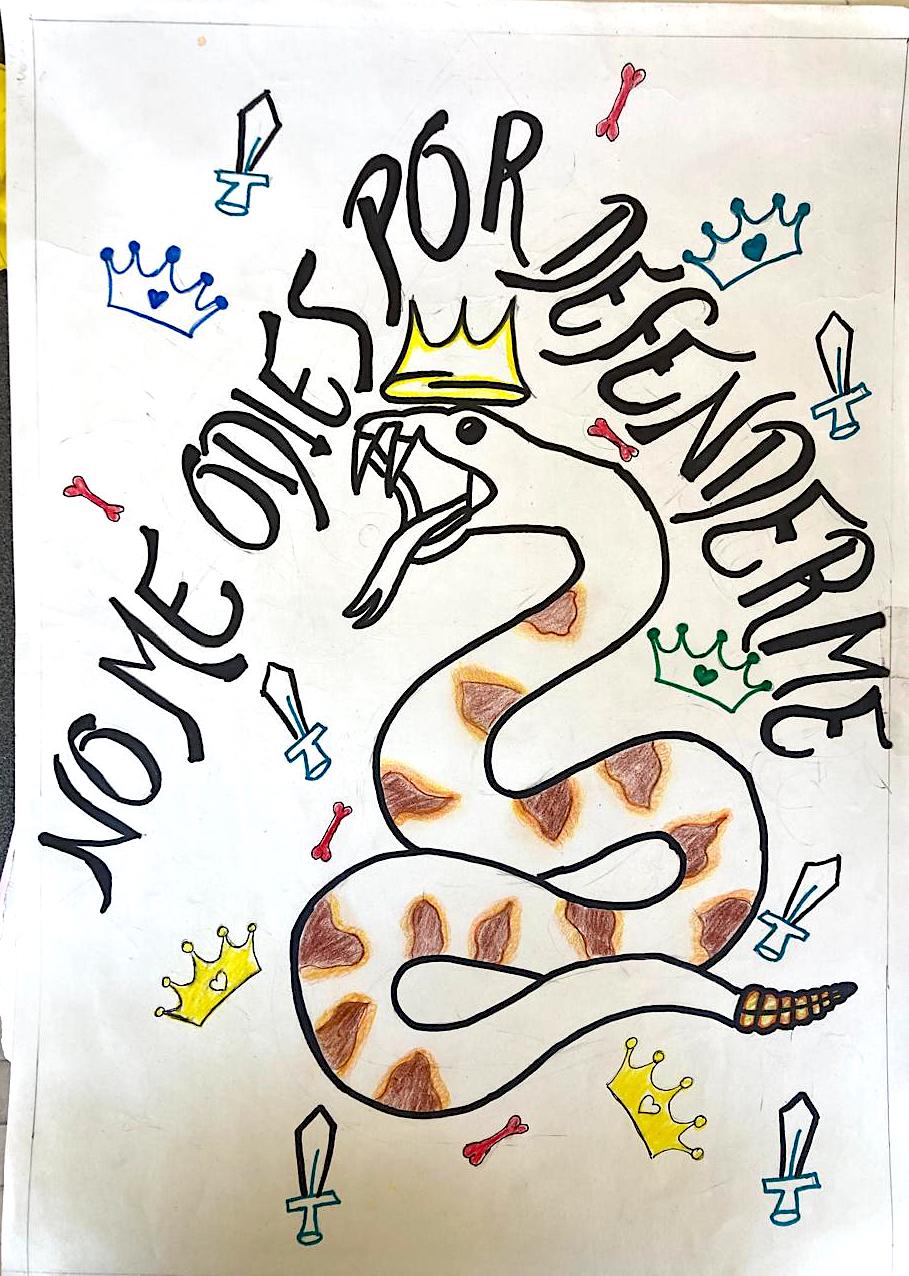 NO ME ODIES POR DEFENDERME